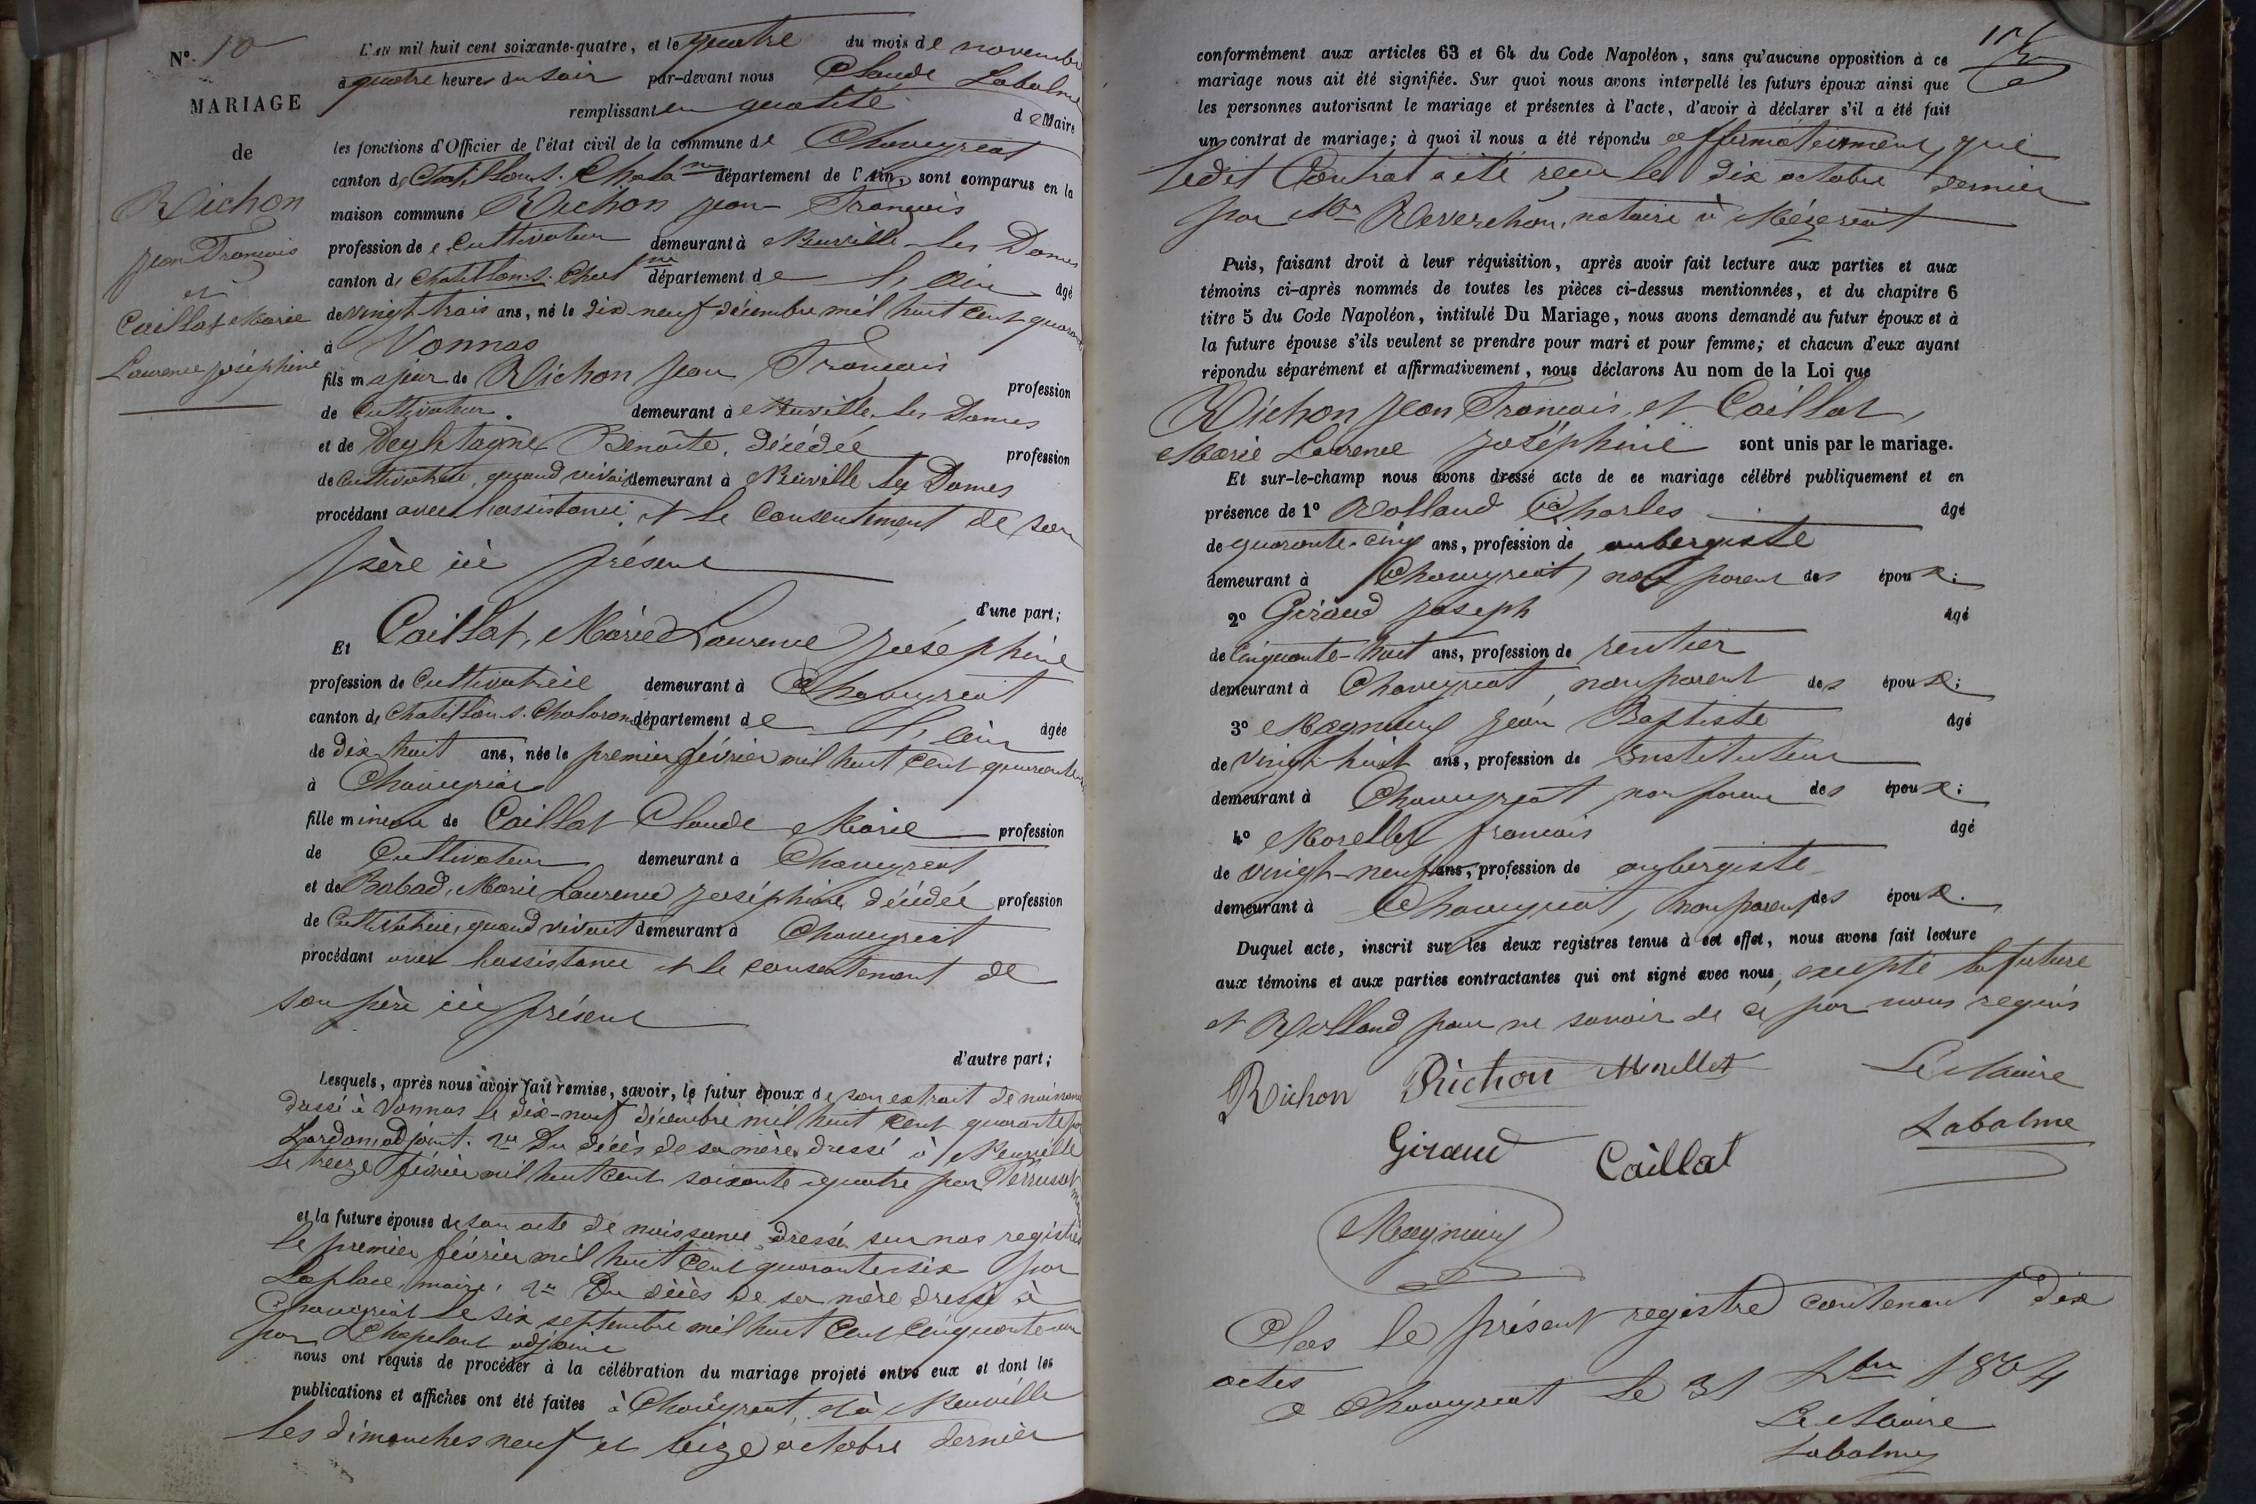 N° 10
MARIAGE
de
Richon
Jean François
et
Caillat Marie
Laurence Joséphine
L'AN mil huit cent soixante-quatre, et le quatre du mois de novembre
à quatre heures du soir par-devant nous Claude Labalme
remplissant en qualité de Maire
les fonctions d'Officier de l'état civil de la commune de Chaveyriat
canton de Chatillon s. Chal.ne département de l'Ain, sont comparus en la
maison commune Richon Jean François
profession de cultivateur demeurant à Neuville-les Dames
canton de Chatillon s. Chal.ne département de l'ain âgé
de vingt trois ans, né le dix neuf décembre mil huit cent quarante
à Vonnas
fils majeur de Richon Jean François profession
de cultivateur. demeurant à Neuville les Dames
et de Benoîte, décédée profession
de cultivatrice, quand vivait demeurant à Neuville les Dames
procédant avec l'assistance et le consentement de son
père ici présent
d'une part;
Et Caillat, Marie Laurence Joséphine
profession de cultivatrice demeurant à Chaveyriat
canton de Chatillon s. Chalaronne département de l'ain âgée
de dix huit ans, née le premier février mil huit cent quarante six
à Chaveyriat
fille mineure de Caillat Claude Marie profession
de cultivateur demeurant à Chaveyriat
et de Babad, Marie Laurence Joséphine décédée profession
de cultivatrice, quand vivait demeurant à Chaveyriat
procédant avec l'assistance et le consentement de
son père ici présent
d'autre part;
Lesquels, après nous avoir fait remise, savoir, le futur époux de son extrait de naissance
dressé à Vonnas le dix-neuf décembre mil huit cent quarante par
adjoint. 2° Du décès de sa mère dressé à Neuville
le treize février mil huit cent soixante quatre par Perrusset maire
et la future épouse de son acte de naissance dressé sur nos registres
le premier février mil huit cent quarante six par
Laplace, maire, 2° Du décès de sa mère dressé à
Chaveyriat le six septembre mil huit cent cinquante-un
par Chapelant adjoint
nous ont requis de procéder à la célébration du mariage projeté entre eux et dont les
publications et affiches ont été faites à Chaveyriat, et à Neuville
les dimanches neuf et seize octobre dernier
conformément aux articles 63 et 64 du Code Napoléon, sans qu'aucune opposition à ce
mariage nous ait été signifiée. Sur quoi nous avons interpellé les futurs époux ainsi que
les personnes autorisant le mariage et présentes à l'acte, d'avoir à déclarer s'il a été fait
un contrat de mariage; à quoi il nous a été répondu affirmativement, que
ledit Contrat a été reçu le dix octobre dernier
par Me Reverchon, notaire à Mézeriat
Puis, faisant droit à leur réquisition, après avoir fait lecture aux parties et aux
témoins ci-après nommés de toutes les pièces ci-dessus mentionnées, et du chapitre 6
titre 5 du Code Napoléon, intitulé Du Mariage, nous avons demandé au futur époux et à
la future épouse s'ils veulent se prendre pour mari et pour femme; et chacun d'eux ayant
répondu séparément et affirmativement, nous déclarons Au nom de la Loi que
Richon Jean François, et Caillat,
Marie Laurence Joséphine sont unis par le mariage.
Et sur-le-champ nous avons dressé acte de ce mariage célébré publiquement et en
présence de 1° Rolland Charles âgé
de quarante-cinq ans, profession de aubergiste
demeurant à Chaveyriat, non parent des époux;
2° Giraud Joseph âgé
de cinquante-huit ans, profession de rentier
demeurant à Chaveyriat, non parent des époux;
3° Jean Baptiste âgé
de vingt huit ans, profession de Instituteur
demeurant à Chaveyriat, non parent des époux;
4° Morellet françois âgé
de vingt-neuf ans, profession de aubergiste
demeurant à Chaveyriat, non parent des époux.
Duquel acte, inscrit sur les deux registres tenus à cet effet, nous avons fait lecture
aux témoins et aux parties contractantes qui ont signé avec nous, excepté la future
et Rolland pour ne savoir de ce par nous requis
Richon Richon Morellet Le Maire
Giraud Caillat Labalme
Clos le présent registre contenant dix
actes
à Chaveyriat le 31 Xbre 1864
Le Maire
Labalme